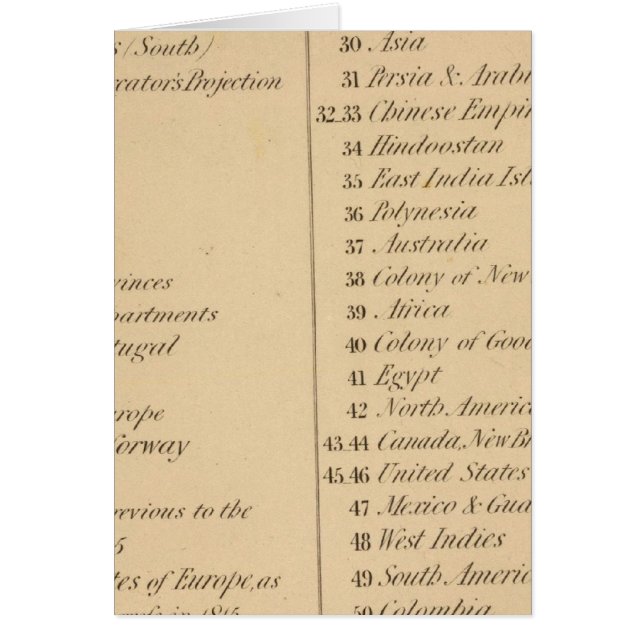 s (South)
rcator's Projection
vinces
partments
tugal
urope
Norway
revious to the
5
tes of Europe, as
in 1815
30 Asia
31 Persia & Arabi
32_33 Chinese Empir
34 Hindoostan
35 East India Isl
36 Polynesia
37 Australia
38 Colony of New
39 Africa
40 Colony of Good
41 Egypt
42 North America
43_44 Canada, New Br
45_46 United States
47 Mexico & Gua
48 West Indies
49 South Americ
50 Colombia